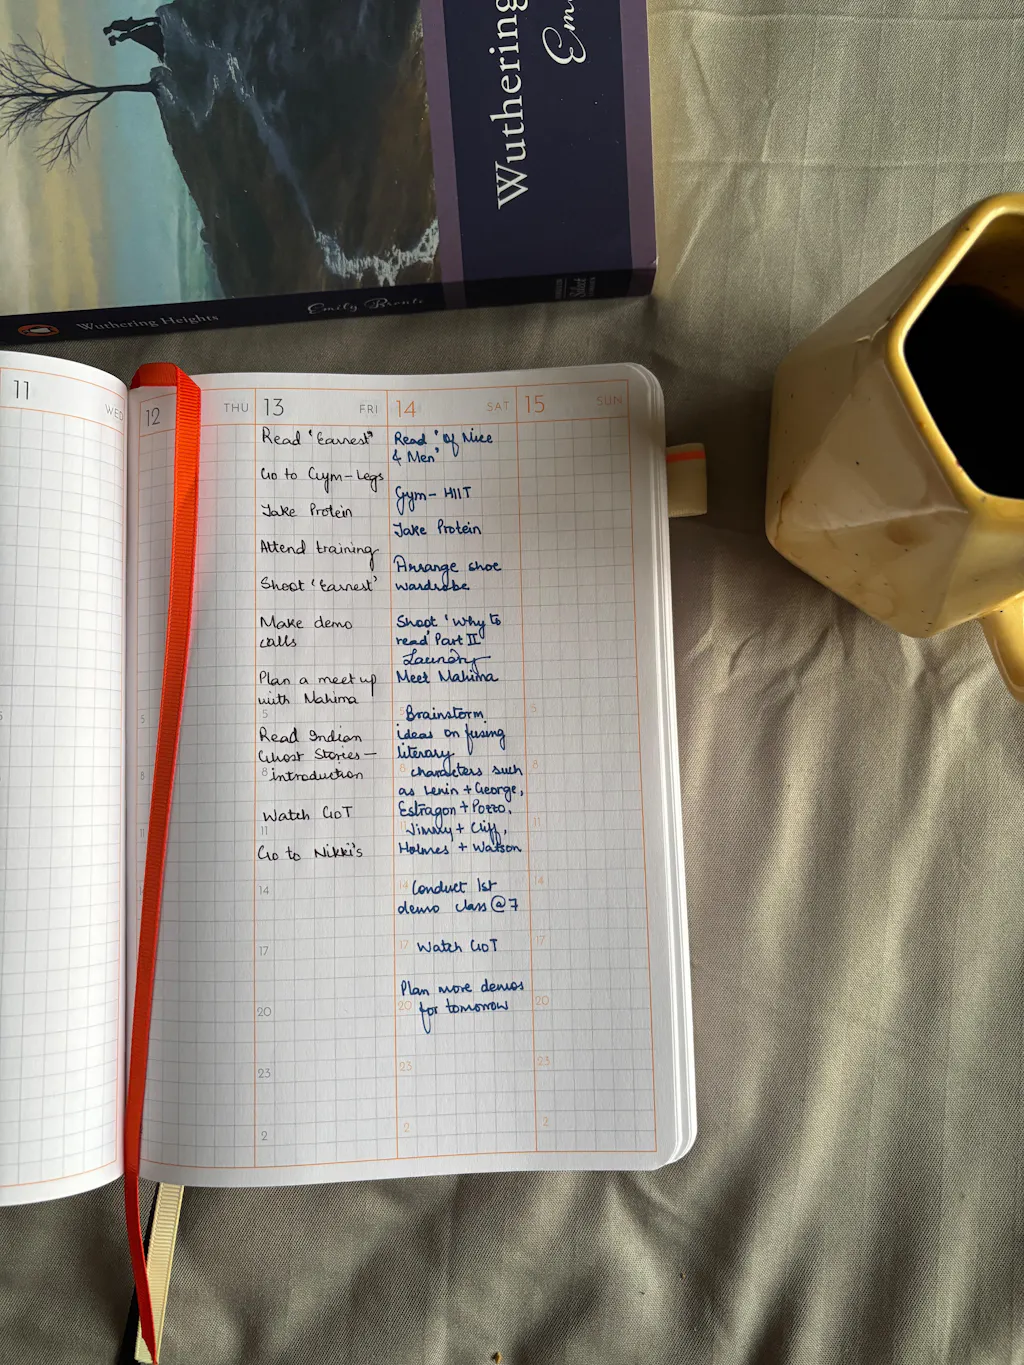 Wuthering
Em
Wuthering Heights
Emily Brontë
Select
11
WED
12
THU
13
FRI
14
SAT
15
SUN
Read 'Earnest'
Go to Gym-Legs
Take Protein
Attend training
Shoot 'Earnest'
Make demo
calls
Plan a meet up
with Mahima
5
Read Indian
Ghost Stories—
8 introduction
Watch GoT
11
Go to Nikki's
14
17
20
23
2
Read 'Of Mice
& Men'
Gym- HIIT
Take Protein
Arrange shoe
wardrobe
Shoot 'Why to
read' Part II
Laundry
Meet Mahima
5 Brainstorm
ideas on fusing
literary
8 characters such
as Lenin + George,
Estragon + Pozzo,
11 Jimmy + Cliff,
Holmes + Watson
14 Conduct 1st
demo class @ 7
17 Watch GoT
Plan more demos
20 for tomorrow
23
2
5
8
11
14
17
20
23
2
5
8
11